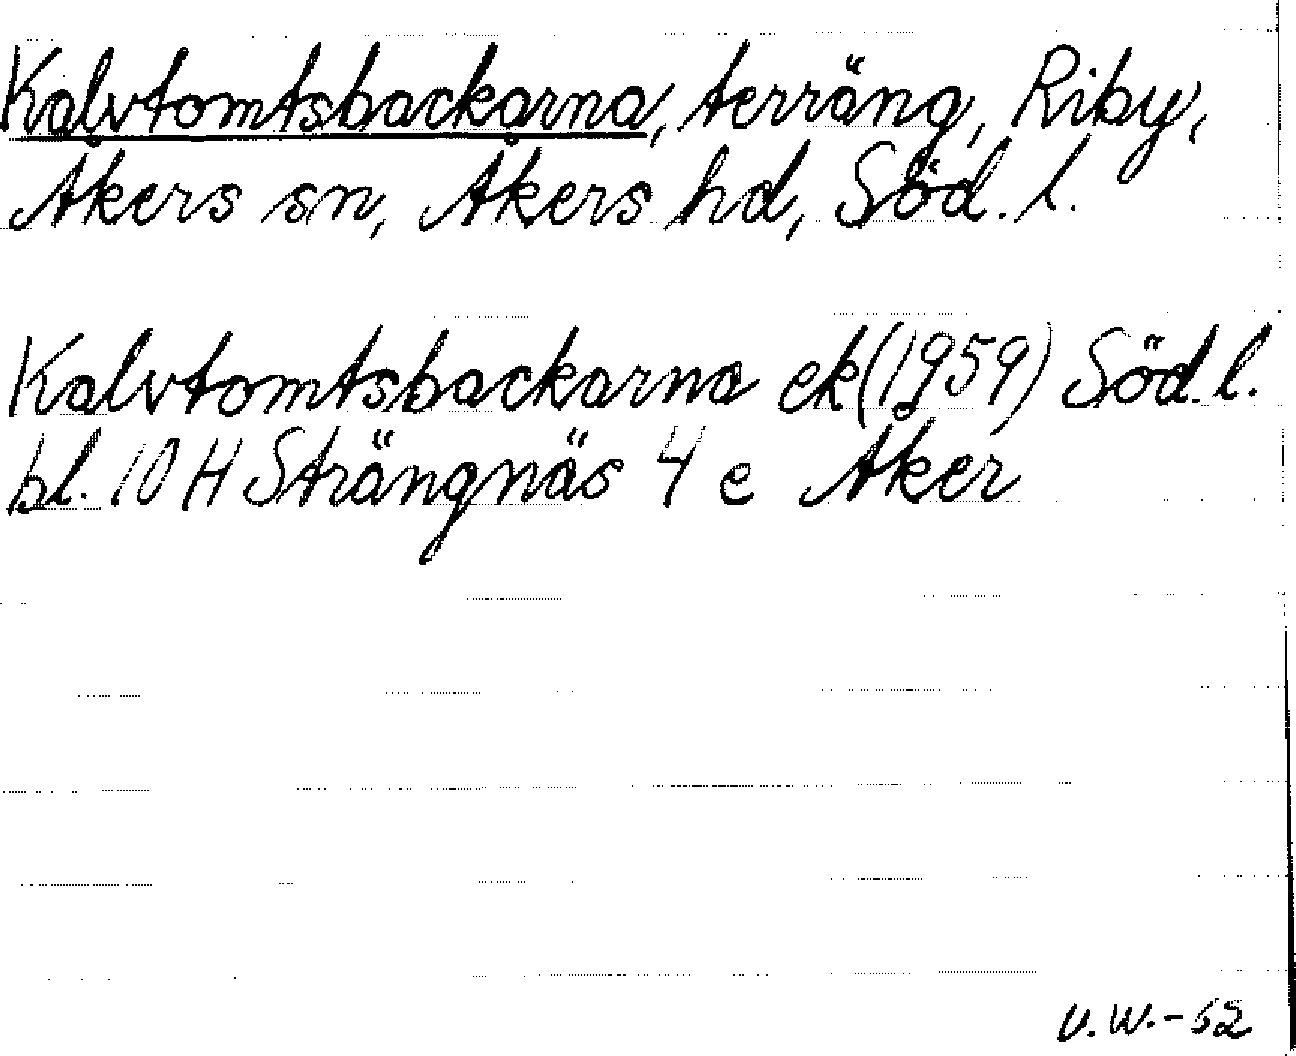 Kalvtomtsbackarna, terräng, Riby,
Åkers sn, Åkers hd, Söd. l.
Kalvtomtsbackarna ek (1959) Söd. l.
bl. 10 H Strängnäs 4 e Åker
U.W.-62